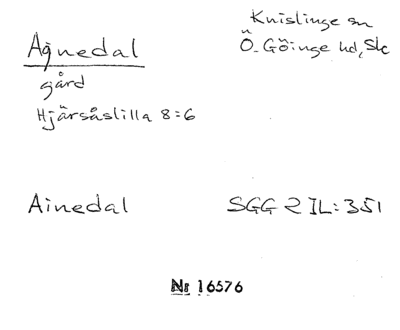 Agnedal
Knislinge sn
Ö. Göinge hd, Sk
gård
Hjärsåslilla 8=6
Ainedal
SGG 2 IL: 351
Nr 16576